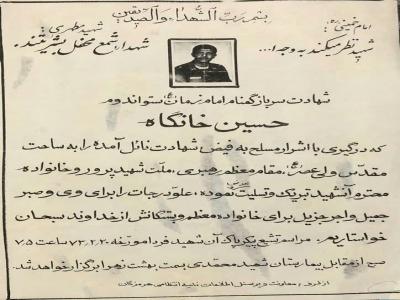 بسم رب الشهداء والصدیقین
امام خمینی (ره):
شهید نظر میکند به وجه ا...
شهید مطهری:
شهدا شمع محفل بشریتند.
شهادت سرباز گمنام امام زمان (عج) ستواندوم
حسین خانگاه
که در گیری با اشرار مسلح به فیض شهادت نائل آمده را به ساحت
مقدس ولی عصر (عج)، مقام معظم رهبری، ملت شهید پرور و خانواده
محترم آن شهید تبریک و تسلیت عرض نموده، علو درجات را برای وی و صبر
جمیل و اجر جزیل برای خانواده معظم و بستگانش از خداوند سبحان
خواستاریم. مراسم تشیع پیکر پاک آن شهید فردا مورخه ۷۳،۲،۲۰ ساعت ۷.۵
صبح از مقابل بیمارستان شهید محمدی بسمت بهشت زهرا برگزار خواهد شد.
از طرف معاونت و پرسنل اطلاعات ناحیه انتظامی هرمزگان